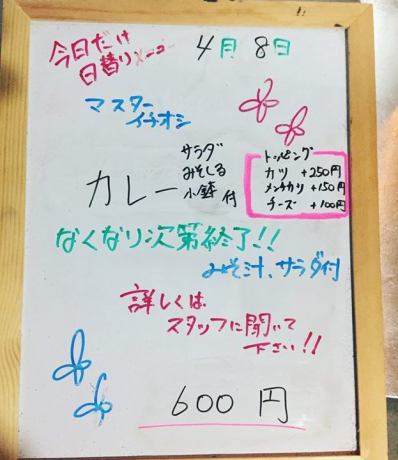 今日だけ
日替りメニュー
4月8日
マスター
イチオシ
カレー
サラダ
みそしる
小鉢付
トッピング
カツ +250円
メンチカツ +150円
チーズ +100円
なくなり次第終了!!
みそ汁、サラダ付
詳しくは
スタッフに聞いて
下さい!!
600円